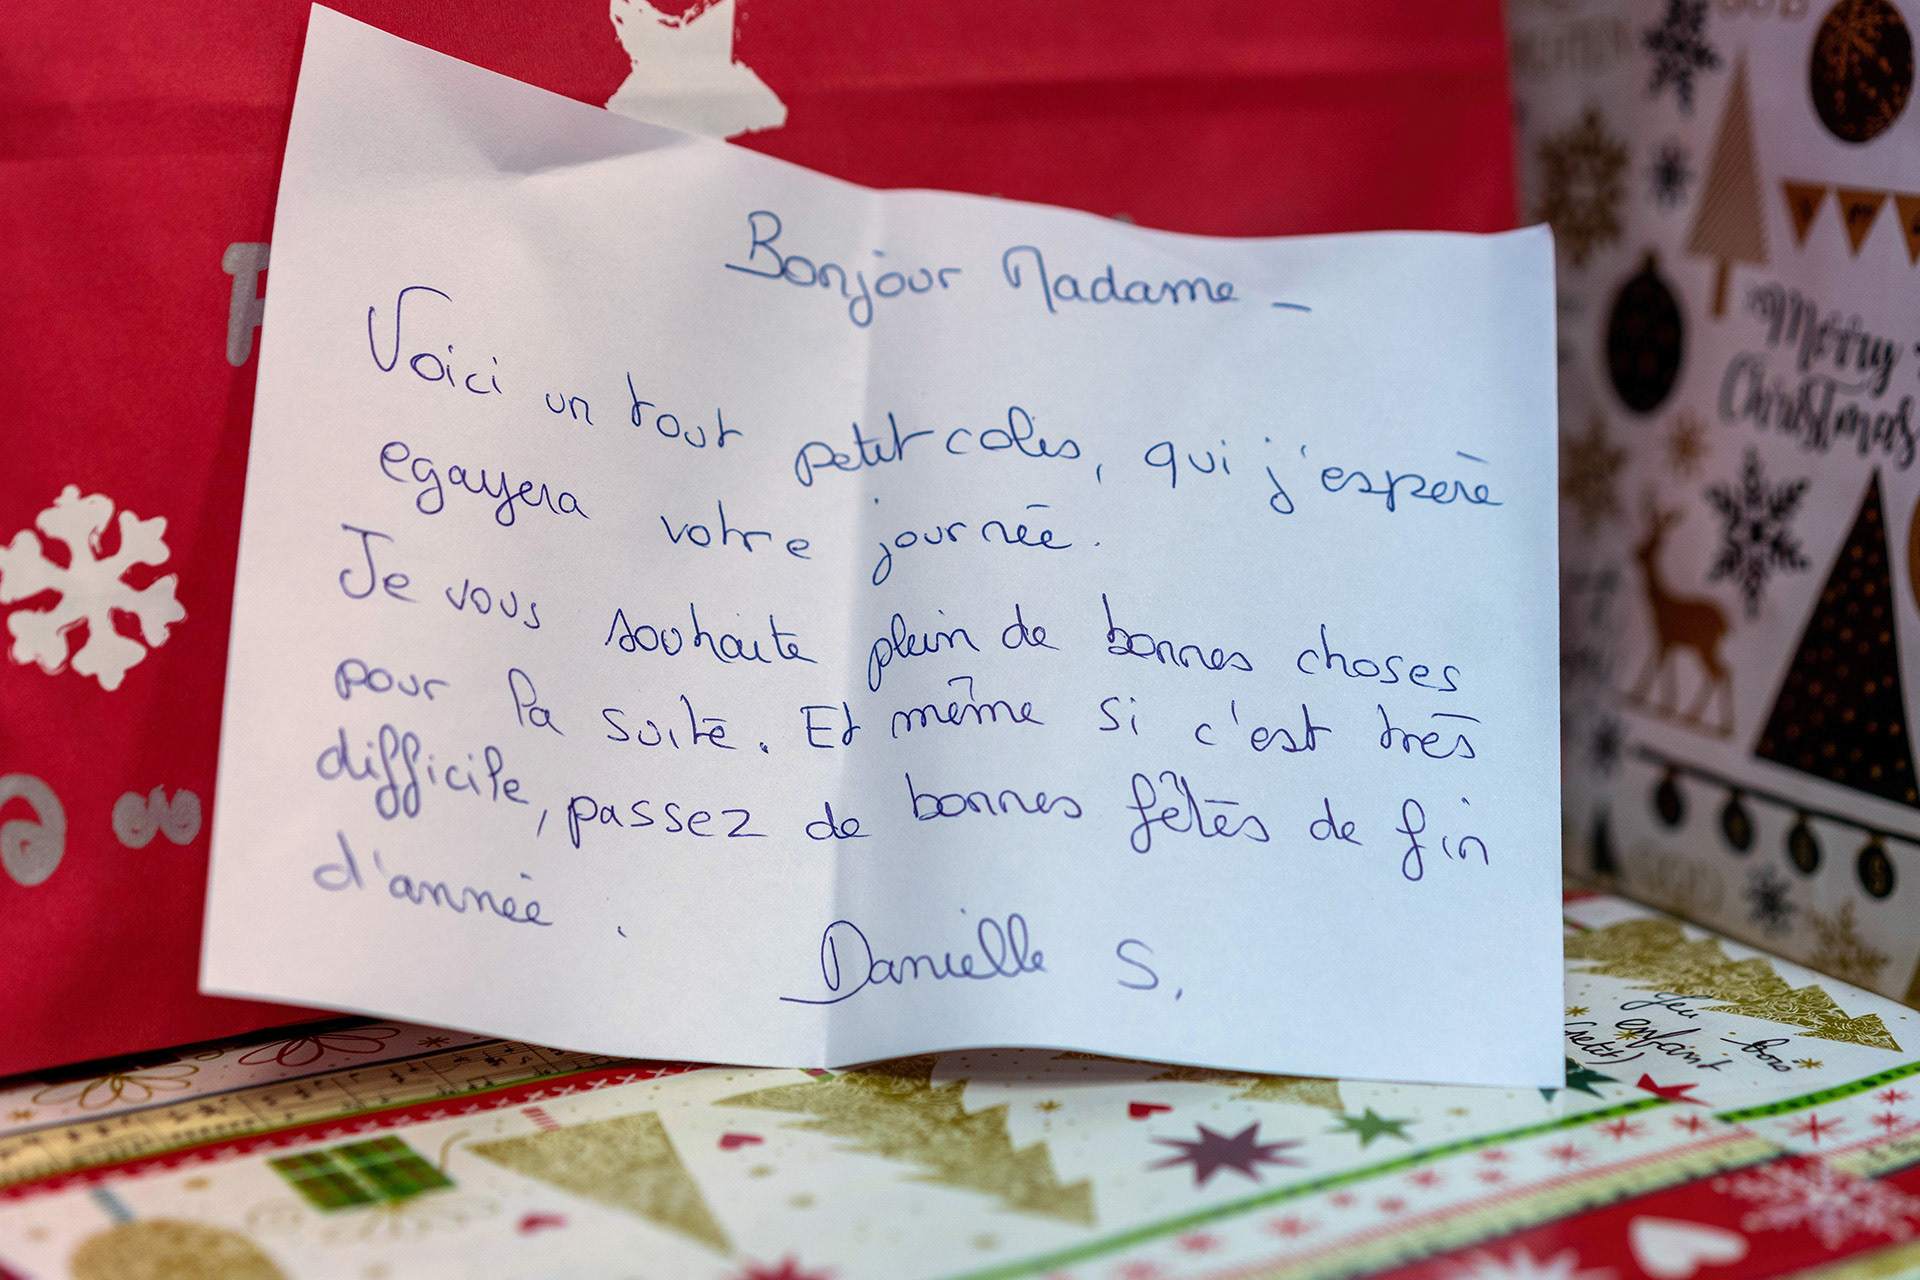 Bonjour Madame –
Voici un tout petit colis, qui j'espère
egayera votre journée.
Je vous souhaite plein de bonnes choses
pour la suite. Et même si c'est très
difficile, passez de bonnes fêtes de fin
d'année.
Danielle S.
Merry
Christmas
Jeu bois
enfant
(petit)